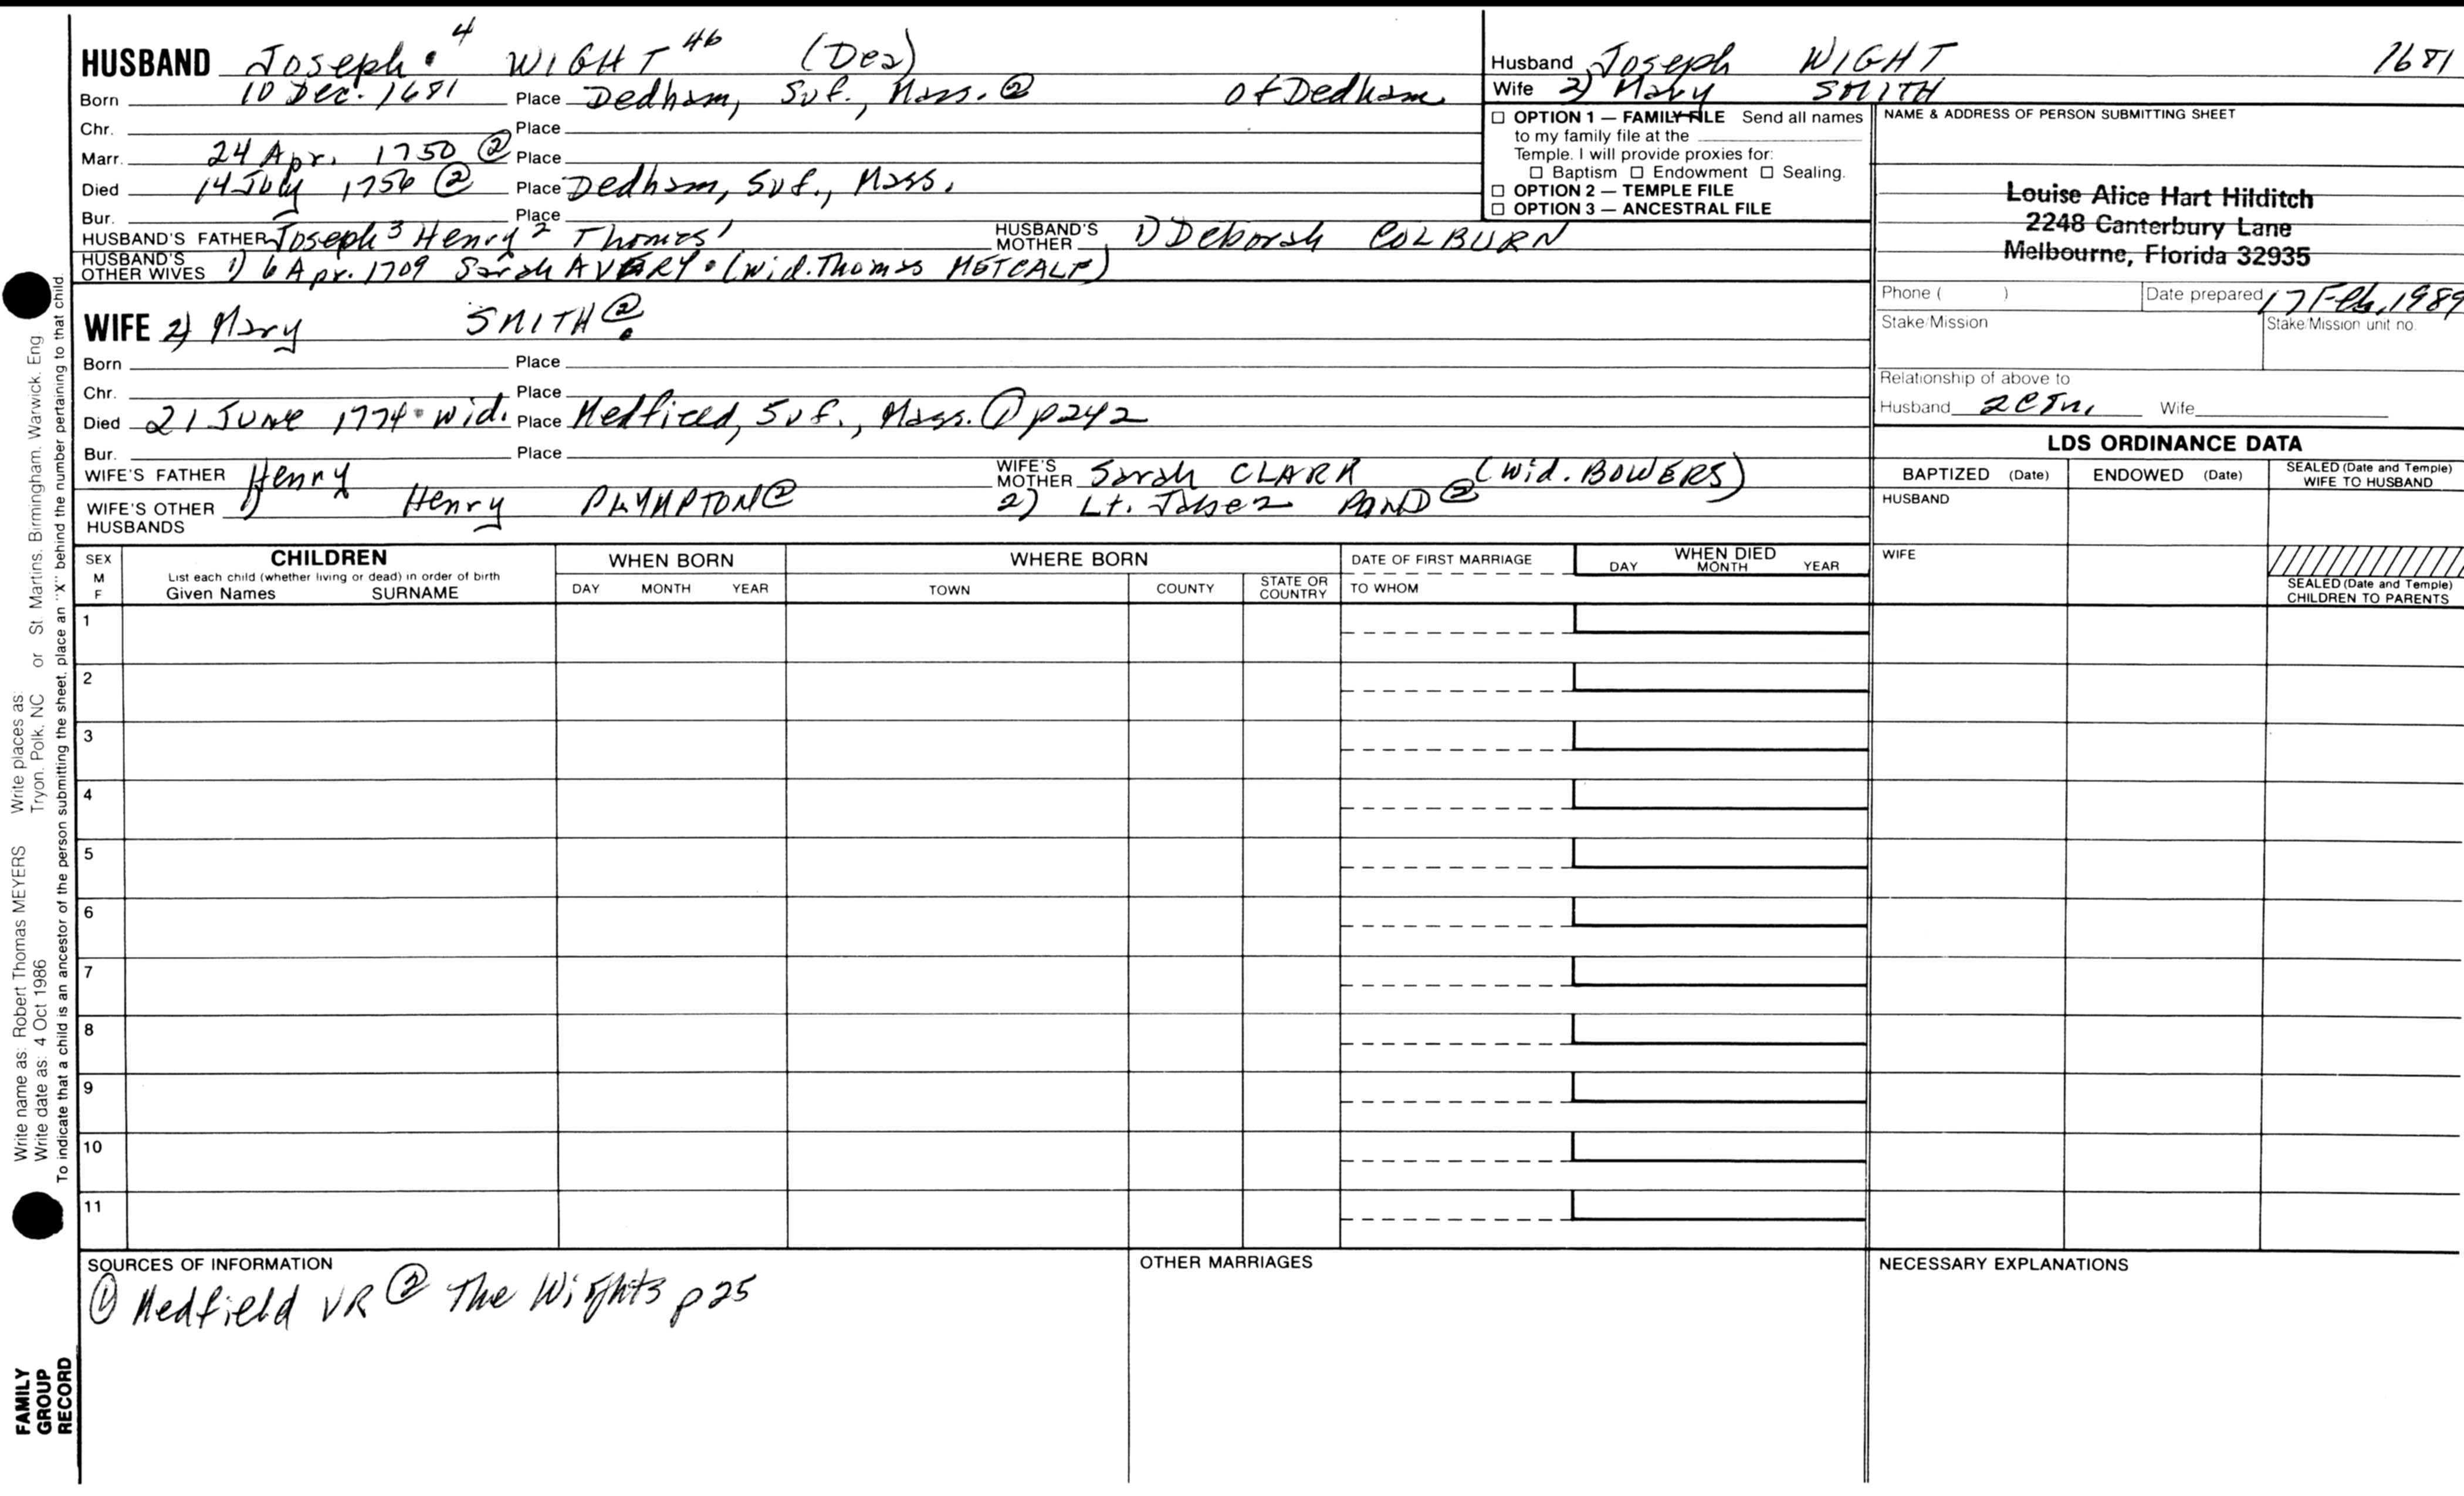 HUSBAND Joseph 4 WIGHT 46 (Dea)
Born 10 Dec. 1681 Place Dedham, Suf., Mass. ② of Dedham
Chr. Place
Marr. 24 Apr. 1750 ② Place
Died 14 July 1756 ② Place Dedham, Suf., Mass.
Bur. Place
HUSBAND'S FATHER Joseph 3 Henry 2 Thomas 1 HUSBAND'S MOTHER 1) Deborah COLBURN
HUSBAND'S OTHER WIVES 1) 6 Apr. 1709 Sarah AVERY (wid. Thomas METCALF)
WIFE 2) Mary SMITH ②
Born Place
Chr. Place
Died 21 June 1774 wid. Place Medfield, Suf., Mass. ① p242
Bur. Place
WIFE'S FATHER Henry WIFE'S MOTHER Sarah CLARK (wid. BOWERS)
WIFE'S OTHER HUSBANDS 1) Henry PLYMPTON ② 2) Lt. Jabez POND ②
Husband Joseph WIGHT 1681
Wife 2) Mary SMITH
☐ OPTION 1 — FAMILY FILE Send all names
to my family file at the
Temple. I will provide proxies for:
☐ Baptism ☐ Endowment ☐ Sealing.
☐ OPTION 2 — TEMPLE FILE
☐ OPTION 3 — ANCESTRAL FILE
NAME & ADDRESS OF PERSON SUBMITTING SHEET
Louise Alice Hart Hilditch
2248 Canterbury Lane
Melbourne, Florida 32935
Phone ( ) Date prepared 17 Feb, 1989
Stake/Mission Stake/Mission unit no.
Relationship of above to
Husband Wife
LDS ORDINANCE DATA
BAPTIZED (Date) ENDOWED (Date) SEALED (Date and Temple) WIFE TO HUSBAND
HUSBAND
WIFE
SEALED (Date and Temple) CHILDREN TO PARENTS
SEX M F
CHILDREN
List each child (whether living or dead) in order of birth
Given Names SURNAME
WHEN BORN
DAY MONTH YEAR
WHERE BORN
TOWN COUNTY STATE OR COUNTRY
DATE OF FIRST MARRIAGE
TO WHOM
WHEN DIED
DAY MONTH YEAR
1
2
3
4
5
6
7
8
9
10
11
SOURCES OF INFORMATION
① Medfield VR ② The Wights p25
OTHER MARRIAGES
NECESSARY EXPLANATIONS
Write name as: Robert Thomas MEYERS Write places as: St. Martins, Birmingham, Warwick, Eng
Write date as: 4 Oct 1986 Tryon, Polk, NC or
To indicate that a child is an ancestor of the person submitting the sheet, place an "X" behind the number pertaining to that child.
FAMILY
GROUP
RECORD